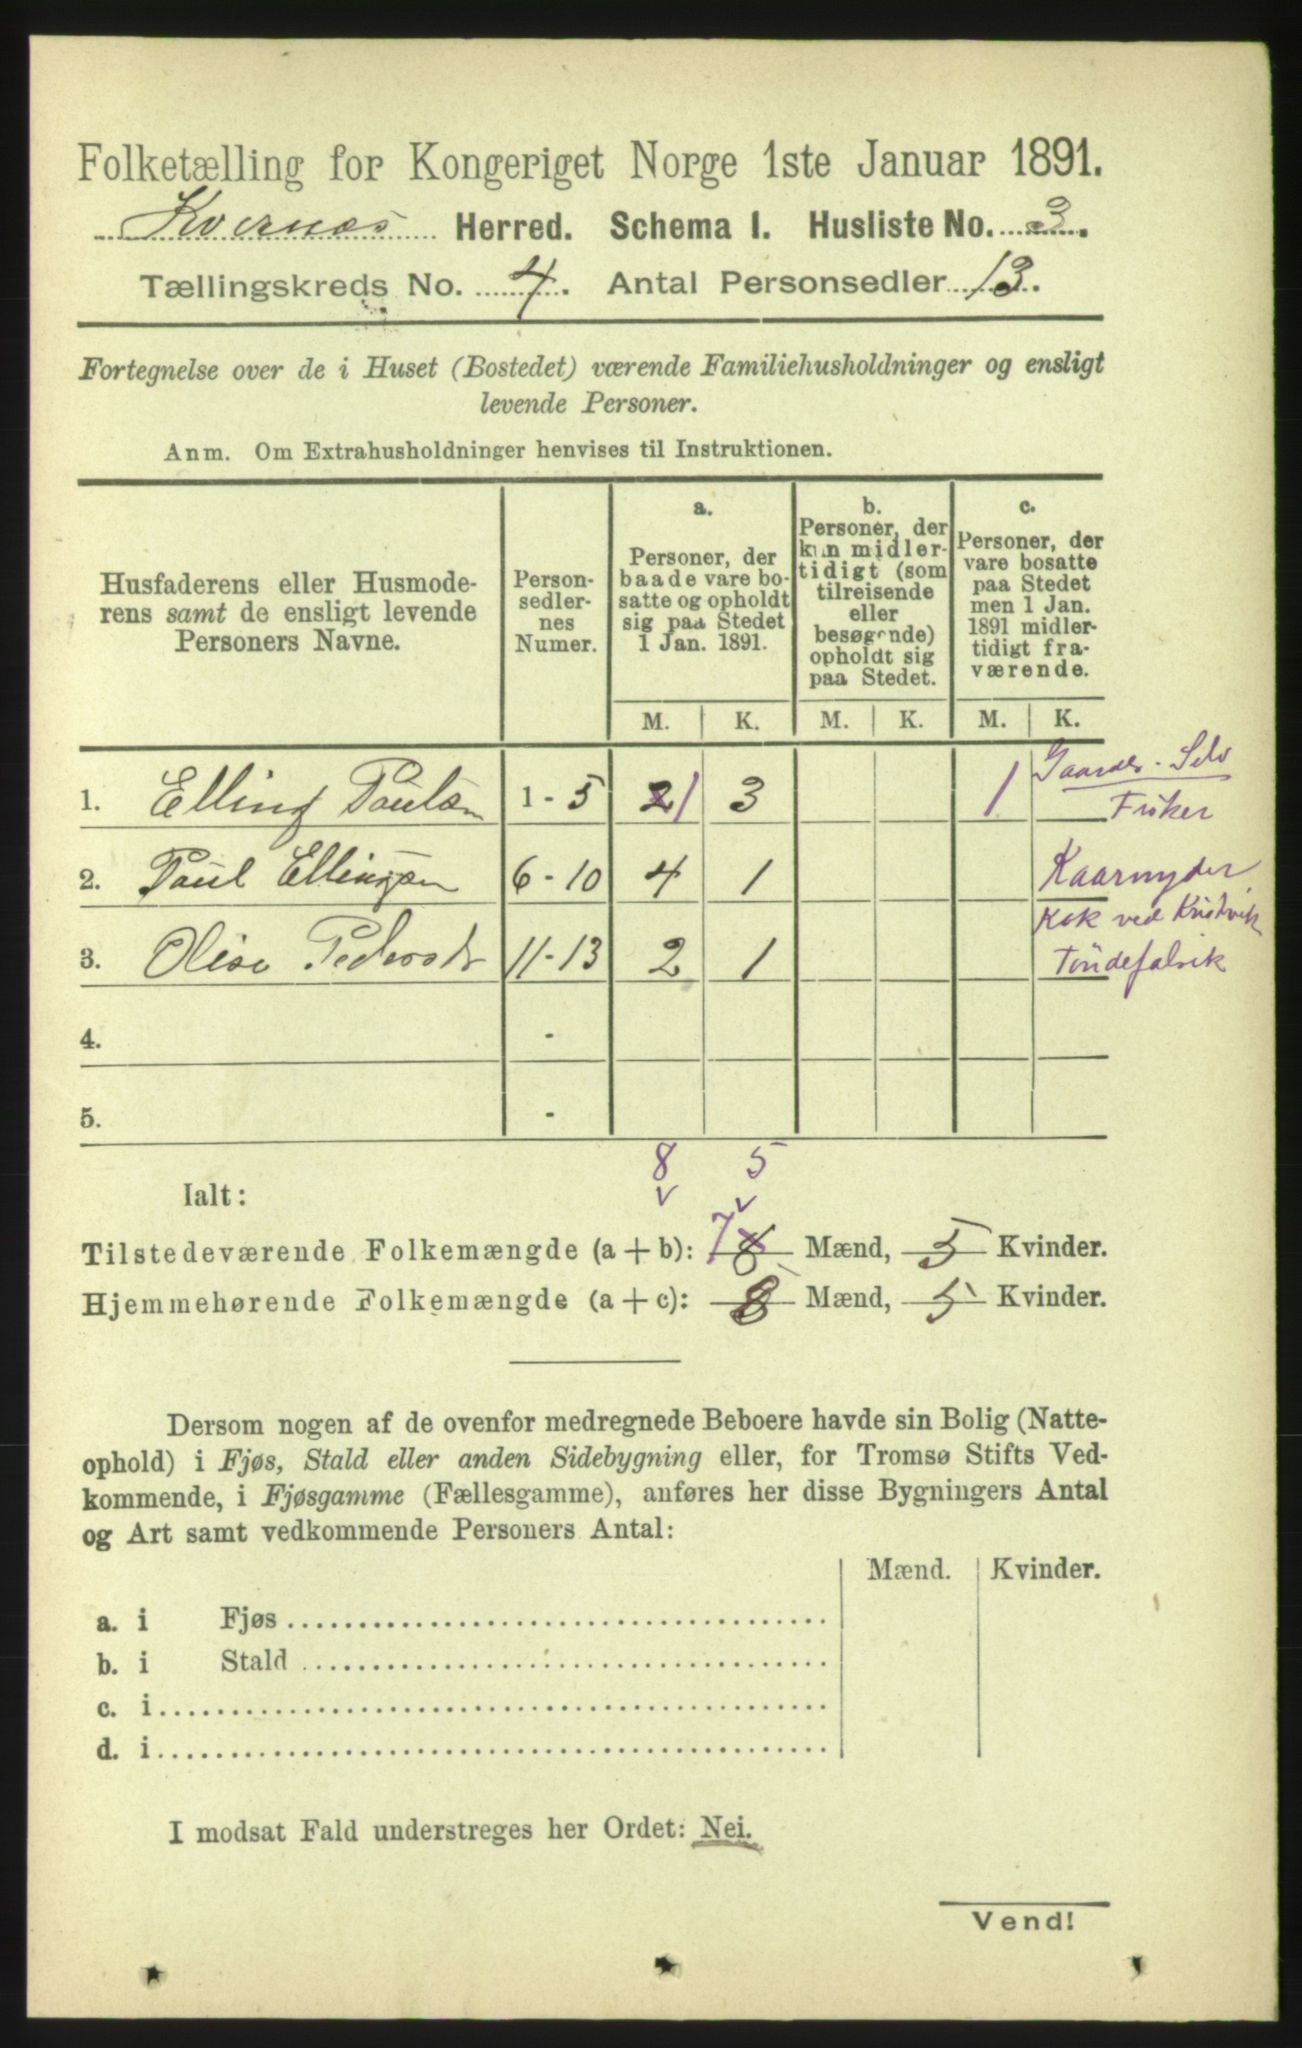 Folketælling for Kongeriget Norge 1ste Januar 1891.
Kvernes Herred. Schema I. Husliste No. 3.
Tællingskreds No. 4. Antal Personsedler 13.
Fortegnelse over de i Huset (Bostedet) værende Familiehusholdninger og ensligt
levende Personer.
Anm. Om Extrahusholdninger henvises til Instruktionen.
Husfaderens eller Husmode-
rens samt de ensligt levende
Personers Navne.
Person-
sedler-
nes
Numer.
a.
Personer, der
baade vare bo-
satte og opholdt
sig paa Stedet
1 Jan. 1891.
b.
Personer, der
kun midler-
tidigt (som
tilreisende
eller
besøgende)
opholdt sig
paa Stedet.
c.
Personer, der
vare bosatte
paa Stedet
men 1 Jan.
1891 midler-
tidigt fra-
værende.
M. K. M. K. M. K.
1. Elling Paulsen 1 - 5 2 1 3 1 Gaardb. Selv
Fisker
2. Paul Ellingsen 6 - 10 4 1 Kaarnyder
3. Olise Pedersdr 11 - 13 2 1 Kok ved Kristvik
Tøndefabrik
4. -
5. -
8 5
Ialt:
Tilstedeværende Folkemængde (a + b): 7 8 Mænd, 5 Kvinder.
Hjemmehørende Folkemængde (a + c): 8 Mænd, 5 Kvinder.
Dersom nogen af de ovenfor medregnede Beboere havde sin Bolig (Natte-
ophold) i Fjøs, Stald eller anden Sidebygning eller, for Tromsø Stifts Ved-
kommende, i Fjøsgamme (Fællesgamme), anføres her disse Bygningers Antal
og Art samt vedkommende Personers Antal:
Mænd. Kvinder.
a. i Fjøs
b. i Stald
c. i
d. i
I modsat Fald understreges her Ordet: Nei.
Vend!